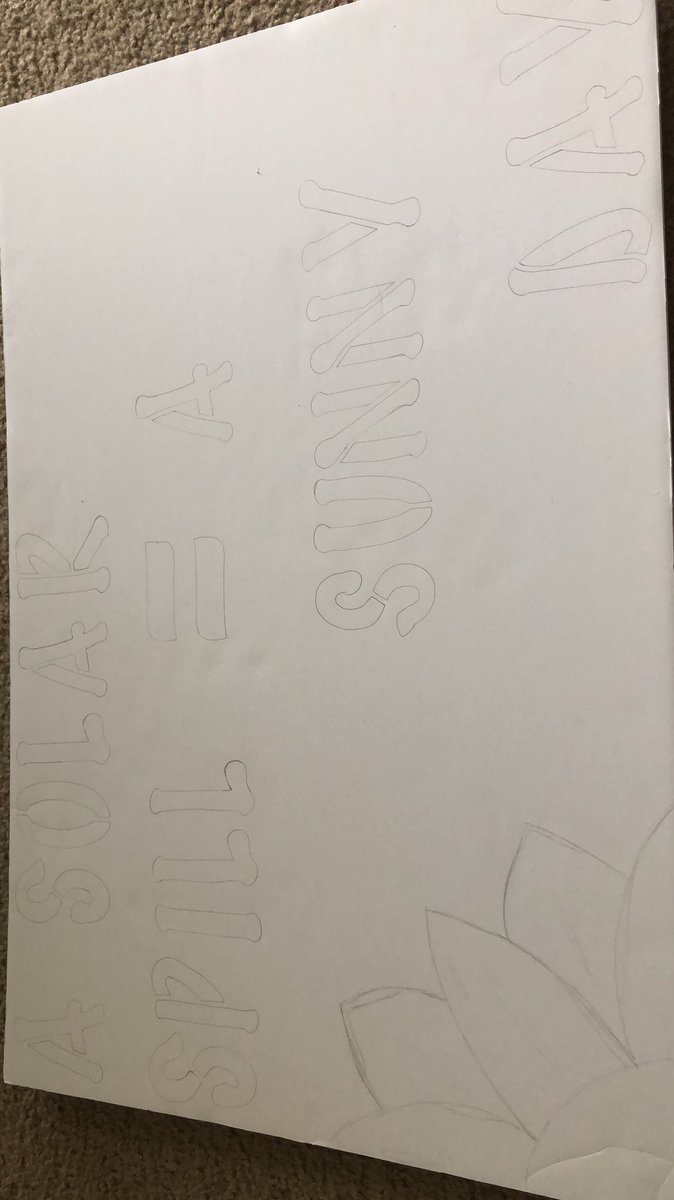 A SOLAR
SPILL = A
SUNNY
DAY